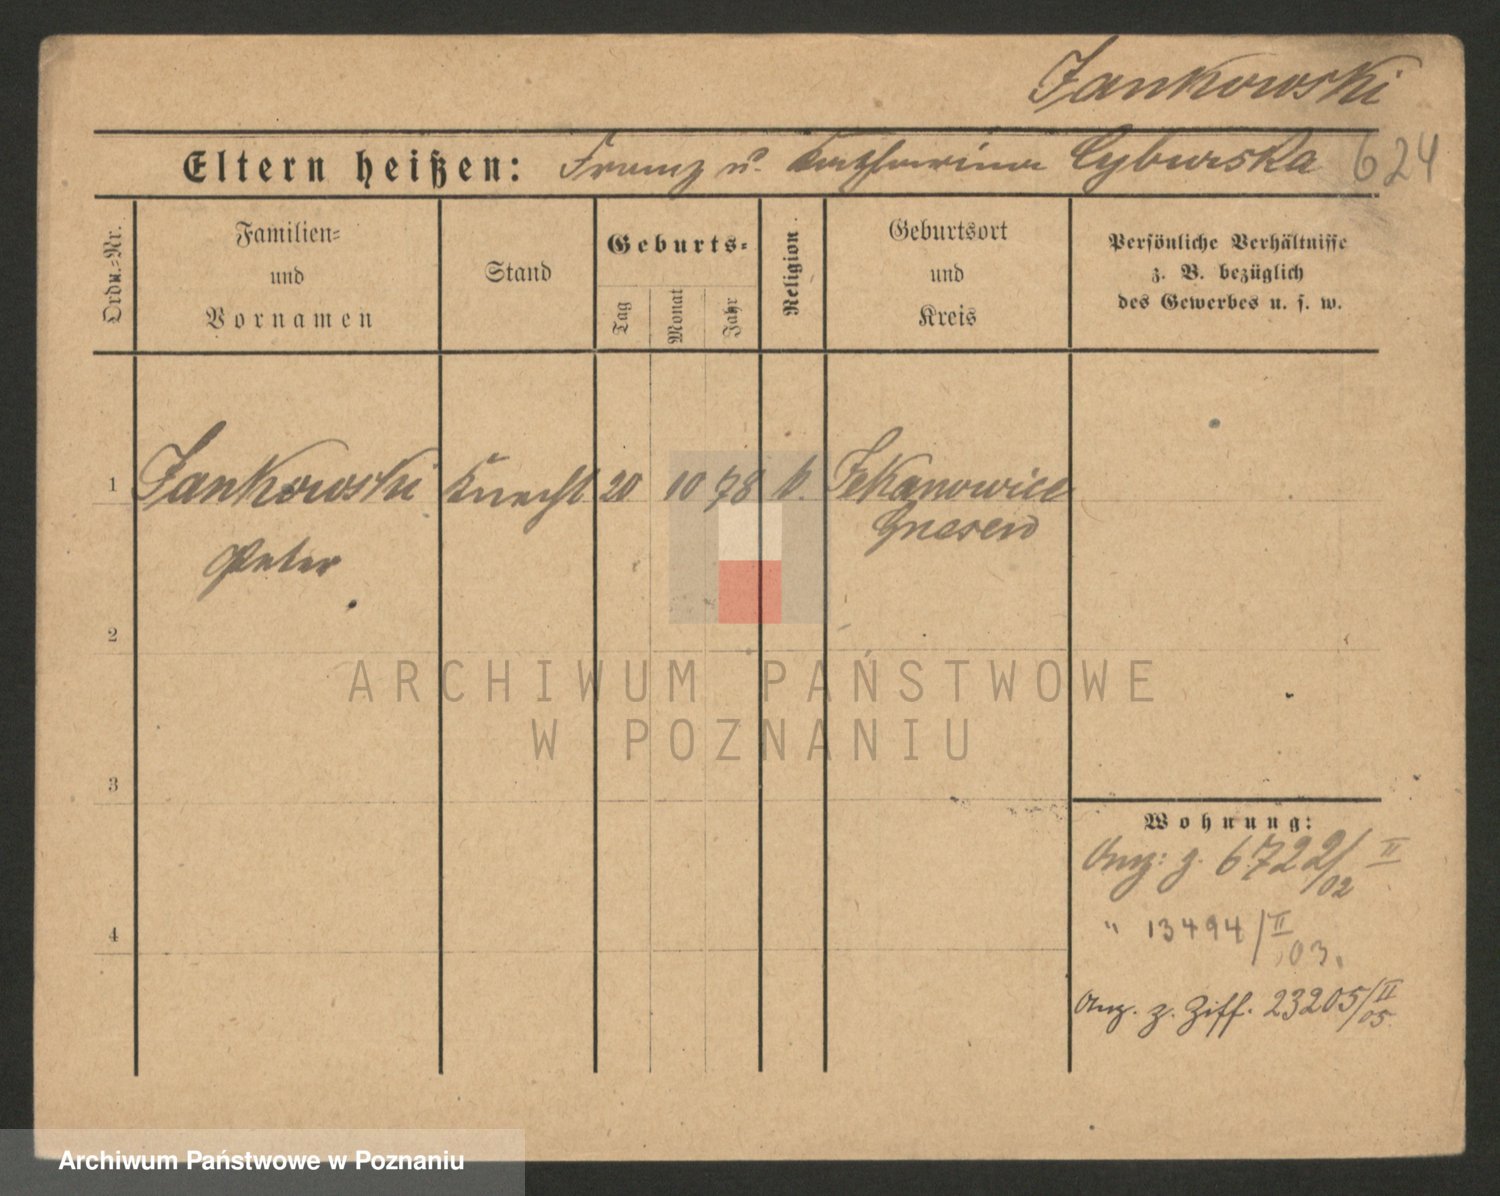 Jankowski
Eltern heißen: Franz u. Katharina Cyburska 624
Ordn.-Nr.
Familien-
und
Vornamen
Stand
Geburts-
Tag
Monat
Jahr
Religion
Geburtsort
und
Kreis
Persönliche Verhältnisse
z. B. bezüglich
des Gewerbes u. s. w.
1 Jankowski Knecht 20 10 78 k. Jekanowice
Peter Gnesen
2
ARCHIWUM PAŃSTWOWE
W POZNANIU
3
Wohnung:
Anz: z. 6722/02 II
4 " 13494/II 03.
Anz. z. Ziff. 23205/II 05.
Archiwum Państwowe w Poznaniu